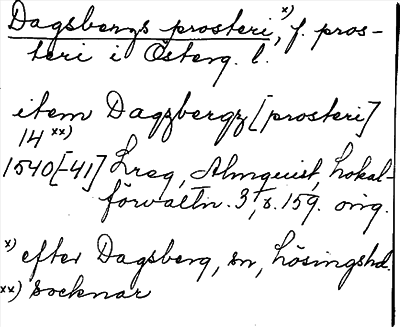 Dagsbergs prosteri,ˣ⁾ f. pros-
teri i Österg. l.
item Dagzbergz [prosteri]
14 ˣˣ⁾
1540[-41] Lreg, Almquist, Lokal-
förvaltn. 3, s. 159. orig.
ˣ⁾ efter Dagsberg, sn, Lösingshd.
ˣˣ⁾ socknar